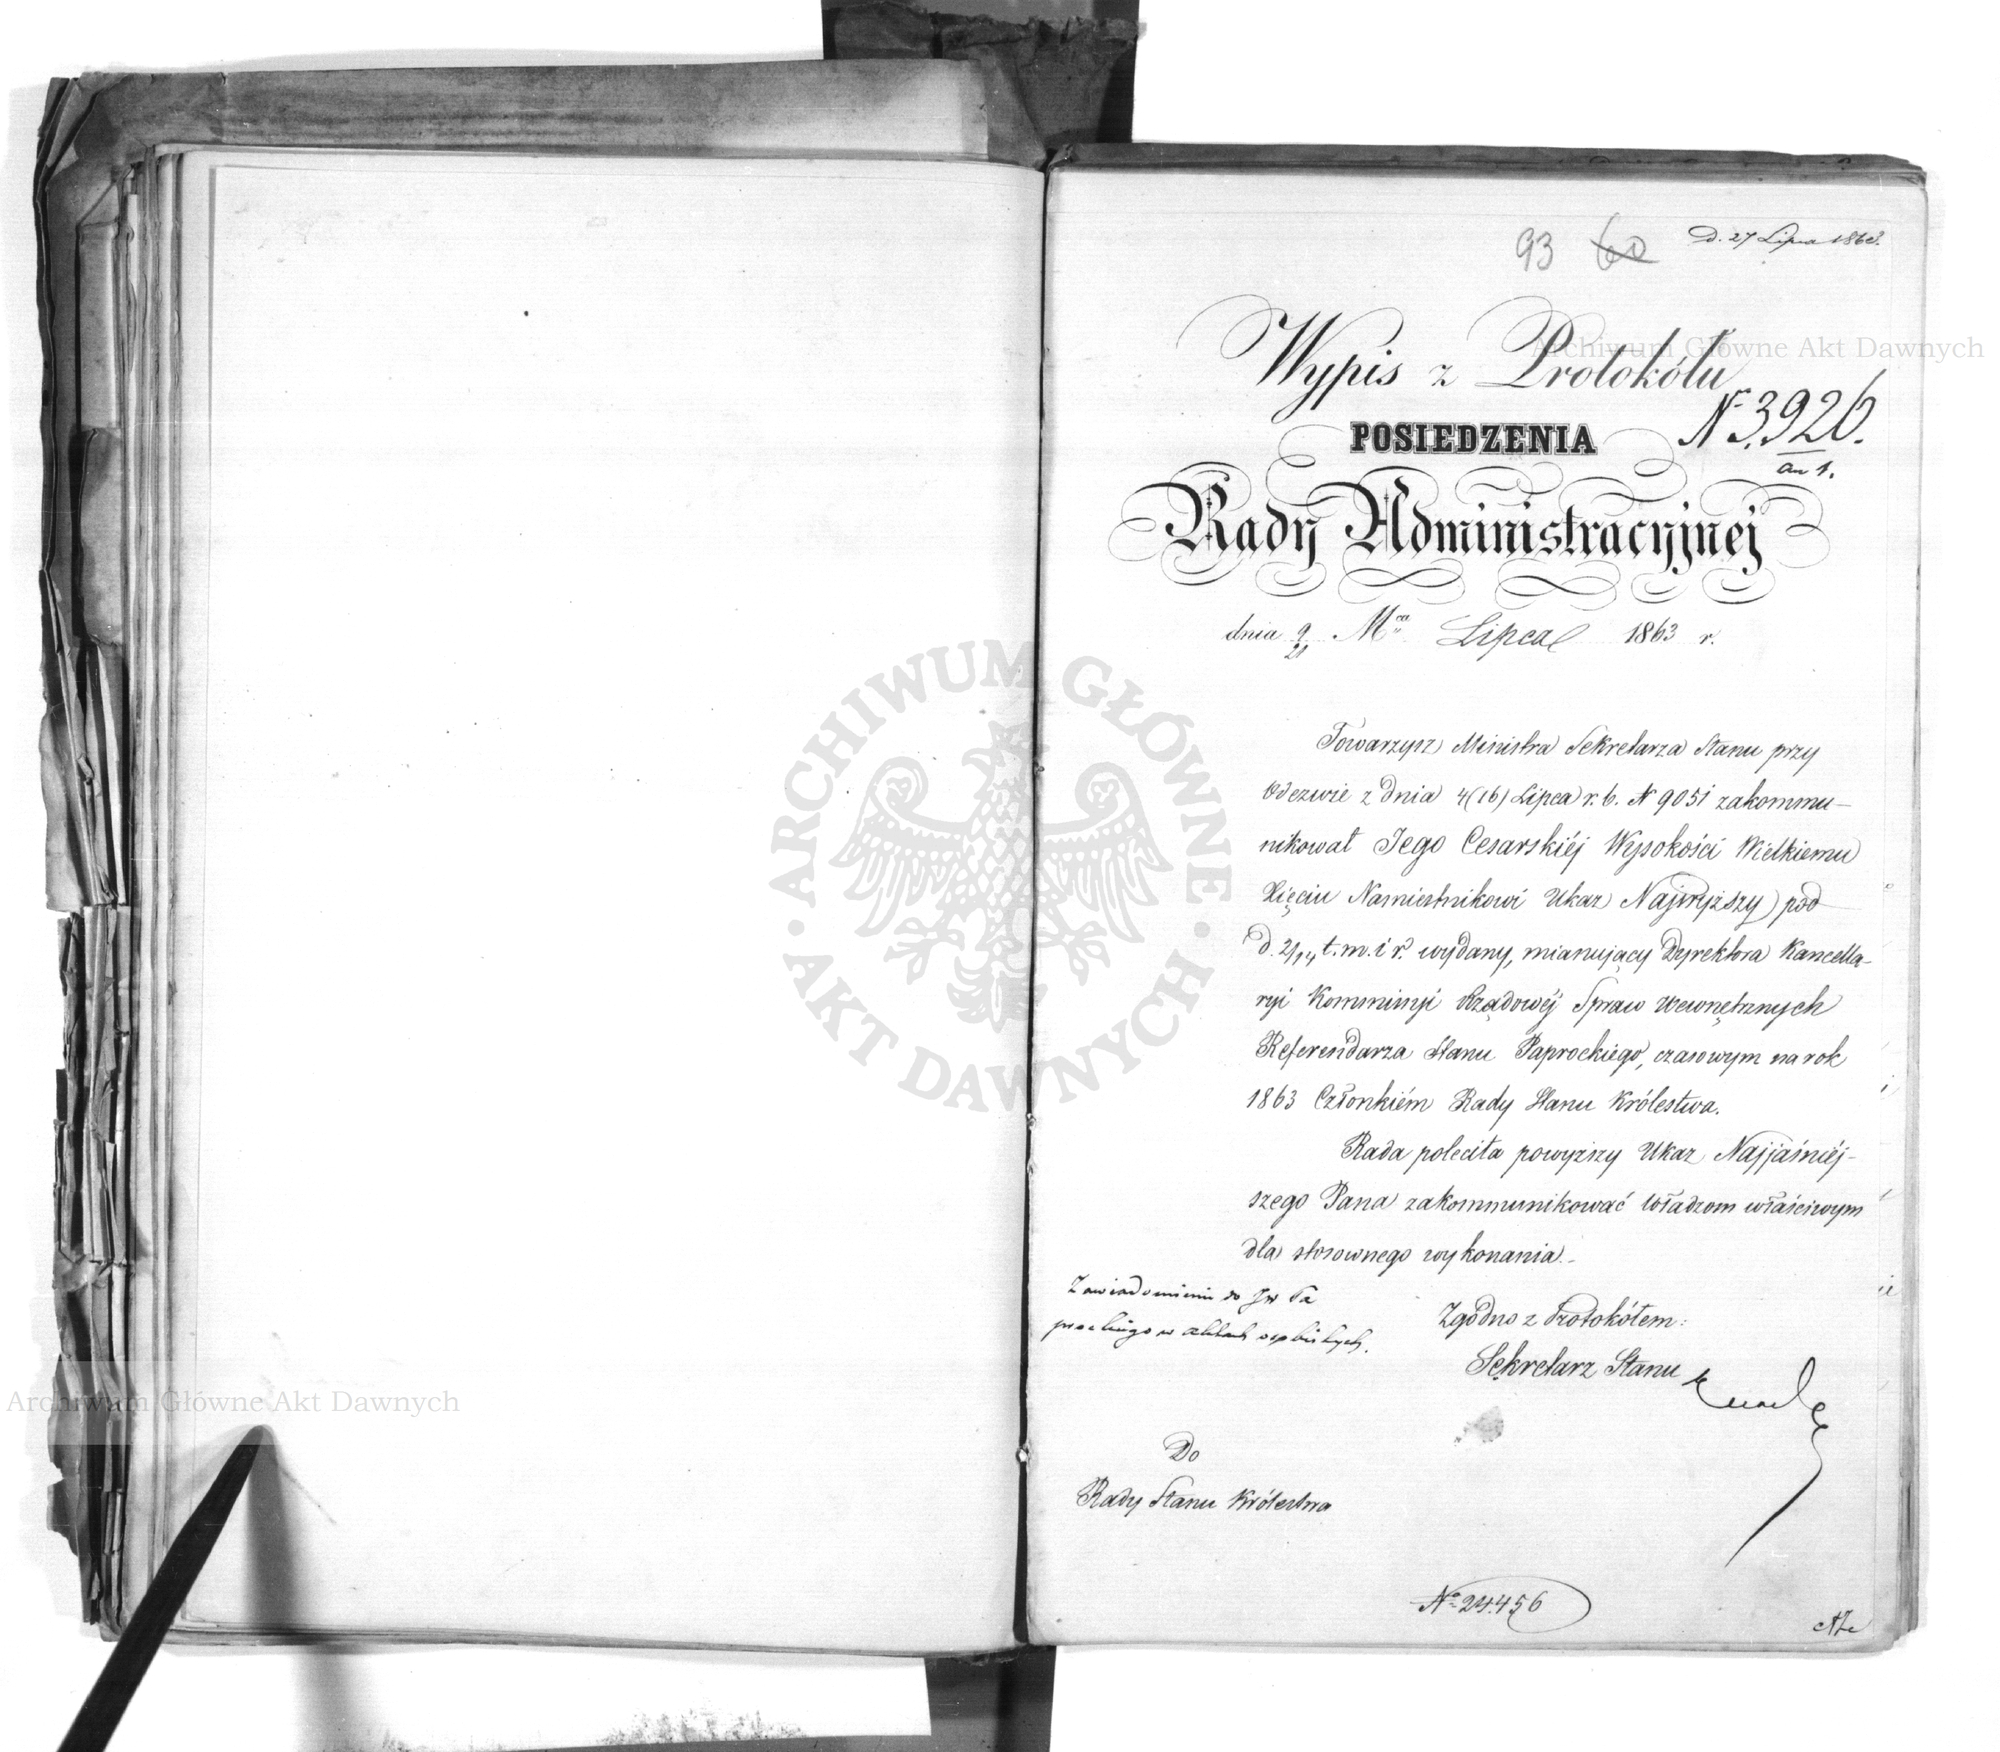 93 60 D. 27 Lipca 1863.
Wypis z Protokółu
N 3.926.
an 1.
POSIEDZENIA
Rady Administracyjnej
dnia 9/21 Mca Lipca 1863 r.
Towarzysz Ministra Sekretarza Stanu przy
Odezwie z dnia 4 (16) Lipca r. b. N 9051 zakommu-
nikował Jego Cesarskiéj Wysokości Wielkiemu
Xięciu Namiestnikowi Ukaz Najwyższy pod
d. 2/14 t. m. i r. wydany, mianujący Dyrektora Kancella-
ryi Kommissyi Rządowéj Spraw Wewnętrznych
Referendarza Stanu Paprockiego, czasowym na rok
1863 Członkiém Rady Stanu Królestwa.
Rada poleciła powyższy Ukaz Najjaśniéj-
szego Pana zakommunikować Władzom właściwym
dla stosownego wykonania.-
Zawiadomienie do JW Pa
prockiego w aktach osobistych.
Zgodno z Protokółem:
Sekretarz Stanu
Do
Rady Stanu Królestwa
No 24.456
ARCHIWUM GŁÓWNE
AKT DAWNYCH
Archiwum Główne Akt Dawnych
Archiwum Główne Akt Dawnych